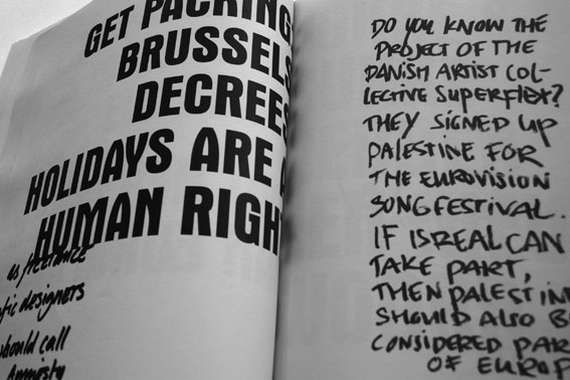 GET PACKING
BRUSSELS
DECREES
HOLIDAYS ARE
HUMAN RIGH
as freelance
fic designers
should call
Amnesty
DO YOU KNOW THE
PROJECT OF THE
DANISH ARTIST COL-
LECTIVE SUPERFLEX?
THEY SIGNED UP
PALESTINE FOR
THE EUROVISION
SONGFESTIVAL.
IF ISREAL CAN
TAKE PART,
THEN PALESTIN
SHOULD ALSO B
CONSIDERED PAR
OF EUROP